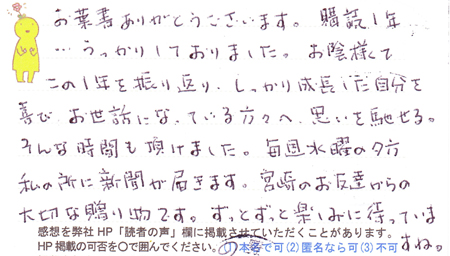 お葉書ありがとうございます。購読1年
…うっかりしておりました。お陰様で
この1年を振り返り、しっかり成長した自分を
喜び、お世話になっている方々へ思いを馳せる。
そんな時間も頂けました。毎週水曜の夕方
私の所に新聞が届きます。宮崎のお友達からの
大切な贈り物です。ずっとずっと楽しみに待っていま
すね。
感想を弊社HP「読者の声」欄に掲載させていただくことがあります。
HP掲載の可否を〇で囲んでください。(1)本名で可(2)匿名なら可(3)不可